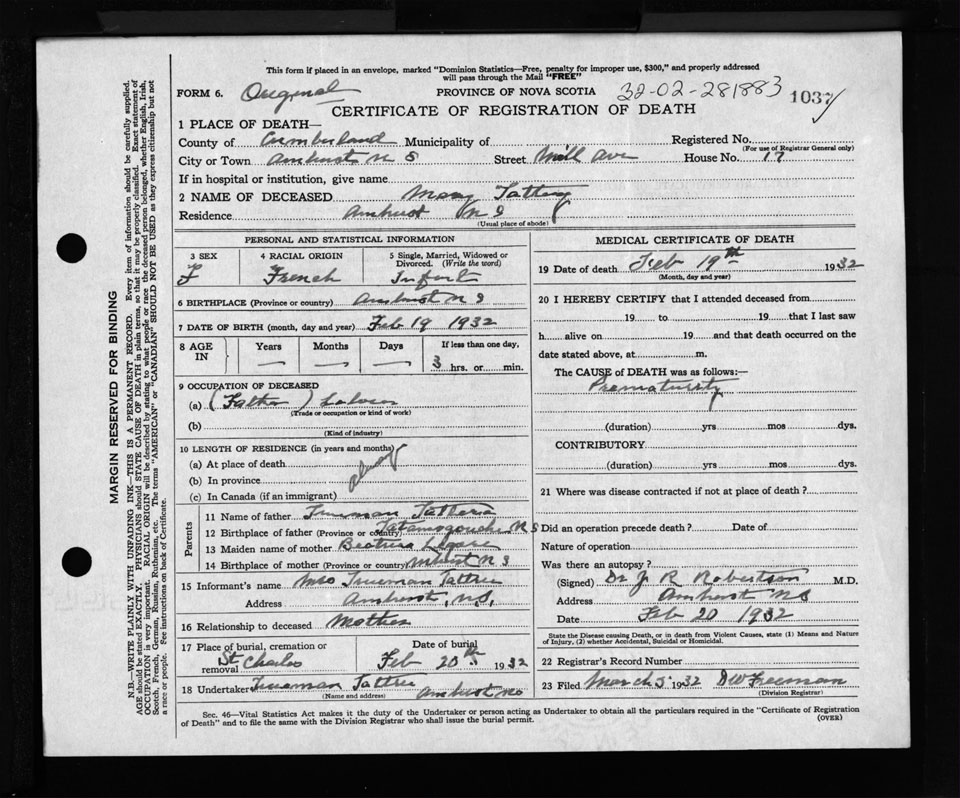 This form if placed in an envelope, marked "Dominion Statistics—Free, penalty for improper use, $300," and properly addressed
will pass through the Mail "FREE"
FORM 6. Original PROVINCE OF NOVA SCOTIA 32-02-281883 1037
CERTIFICATE OF REGISTRATION OF DEATH
1 PLACE OF DEATH—
County of Cumberland Municipality of Registered No.
(For use of Registrar General only)
City or Town Amherst N S Street Mill Ave House No. 17
If in hospital or institution, give name
2 NAME OF DECEASED Mary
Residence Amherst N S
(Usual place of abode)
PERSONAL AND STATISTICAL INFORMATION
3 SEX 4 RACIAL ORIGIN 5 Single, Married, Widowed or
Divorced. (Write the word)
F French Infant
6 BIRTHPLACE (Province or country) Amherst N S
7 DATE OF BIRTH (month, day and year) Feb 19 1932
8 AGE IN Years Months Days If less than one day,
— — — 3 hrs. or min.
9 OCCUPATION OF DECEASED
(a) (Father) Laborer
(Trade or occupation or kind of work)
(b)
(Kind of industry)
10 LENGTH OF RESIDENCE (in years and months)
(a) At place of death
(b) In province always
(c) In Canada (if an immigrant)
Parents
11 Name of father Trueman
12 Birthplace of father (Province or country) Tatamagouche N S
13 Maiden name of mother Beatrice Legere
14 Birthplace of mother (Province or country) Amherst N S
15 Informant's name Mrs Trueman Tattrie
Address Amherst, N.S.
16 Relationship to deceased Mother
17 Place of burial, cremation or removal Date of burial
St Charles Feb 20th 1932
18 Undertaker Trueman Tattrie Amherst NS
(Name and address)
MEDICAL CERTIFICATE OF DEATH
19 Date of death Feb 19th 1932
(Month, day and year)
20 I HEREBY CERTIFY that I attended deceased from
19 to 19 that I last saw
h alive on 19 and that death occurred on the
date stated above, at m.
The CAUSE of DEATH was as follows:—
Prematurity
(duration) yrs mos dys.
CONTRIBUTORY
(duration) yrs mos dys.
21 Where was disease contracted if not at place of death?
Did an operation precede death? Date of
Nature of operation
Was there an autopsy?
(Signed) Dr J R Robertson M.D.
Address Amherst NS
Date Feb 20 1932
State the Disease causing Death, or in death from Violent Causes, state (1) Means and Nature
of Injury, (2) whether Accidental, Suicidal or Homicidal.
22 Registrar's Record Number
23 Filed March 5 1932 DW Freeman
(Division Registrar)
Sec. 46—Vital Statistics Act makes it the duty of the Undertaker or person acting as Undertaker to obtain all the particulars required in the "Certificate of Registration
of Death" and to file the same with the Division Registrar who shall issue the burial permit. (OVER)
MARGIN RESERVED FOR BINDING
N.B.—WRITE PLAINLY WITH UNFADING INK—THIS IS A PERMANENT RECORD. Every item of information should be carefully supplied.
AGE should be stated EXACTLY. PHYSICIANS should STATE CAUSE OF DEATH in plain terms, so that it may be properly classified. Exact statement of
OCCUPATION is very important. RACIAL ORIGIN will be described by stating to what people or race the deceased person belonged, whether English, Irish,
Scotch, French, German, Russian, Ruthenian, etc. The terms "AMERICAN" or "CANADIAN" SHOULD NOT BE USED as they express citizenship but not
a race or people. See instructions on back of Certificate.